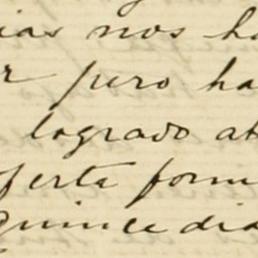 ias nos h
r pero ha
logrado ab
ferta form
quince dia